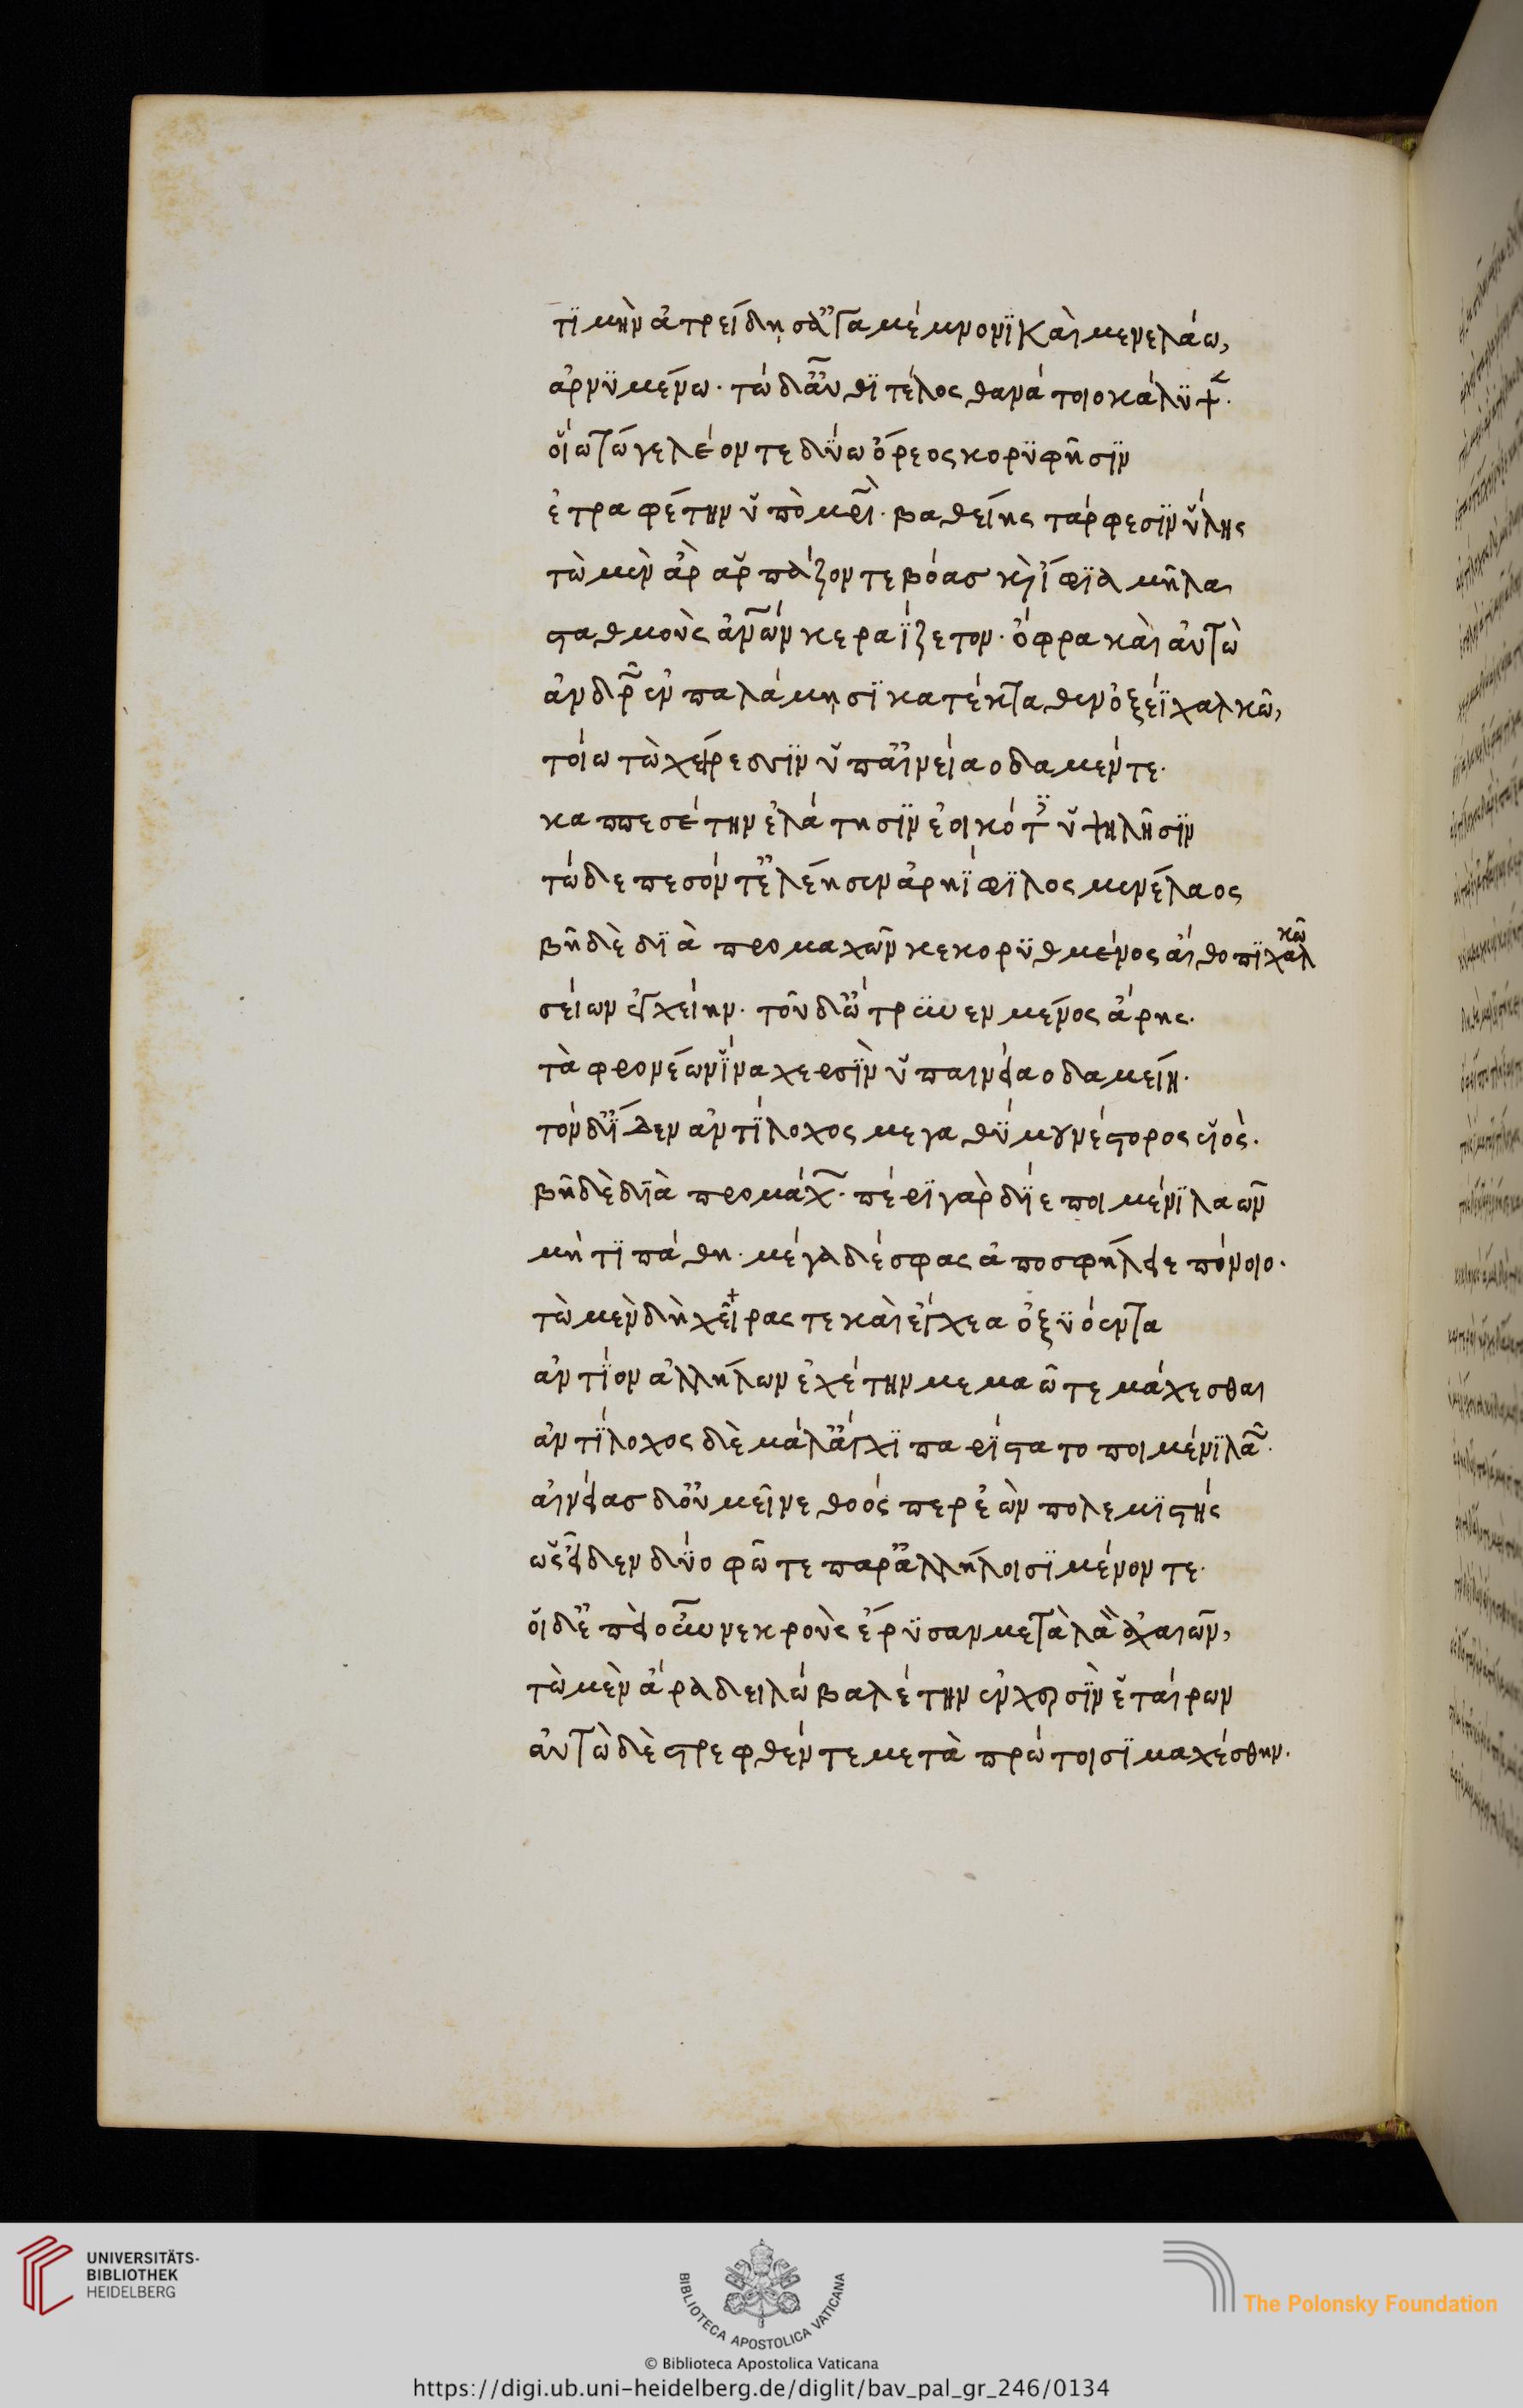 τϊμὴν ἀτρείδησ' ἀγαμέμνονϊ καὶ μενελάω,
ἀρνϋμένω· τὼ δ' αὖθϊ τέλος θανάτοιο κάλϋψεν·
οἵω τώγε λέοντε δύω ὄρεος κορϋφῆσϊν
ἐτραφέτην ὑπὸ μητρὶ· βαθείης τάρφεσϊν ὕλης
τὼ μὲν ἄρ' ἁρπάζοντε βόασ καὶ ἴφϊα μῆλα
σταθμοὺς ἀνθρώπων κεραΐζετον· ὄφρα καὶ αὐτὼ
ἀνδρῶν ἐν παλάμησϊ κατέκταθεν ὀξέϊ χαλκῶ,
τοίω τὼ χείρεσσϊν ὑπ' αἰνείαο δαμέντε·
καππεσέτην ἐλάτησϊν ἐοικότες ὑψηλῆσϊν
τὼ δε πεσόντ' ἐλέησεν ἀρηΐφϊλος μενέλαος
βῆ δὲ δϊὰ προμάχων κεκορϋθμένος αἴθοπϊ χαλκῶ
σείων ἐγχείην· τοῦ δ' ὤτρϋνεν μένος ἄρης·
τὰ φρονέων ἵνα χερσὶν ὑπ' αινείαο δαμείη·
τὸν δ' ἴδεν ἀντϊλοχος μεγαθύμου νέστορος υἱὸς·
βῆ δὲ δϊὰ προμάχων· πέρϊ γὰρ δΐε ποιμένϊ λαῶν
μή τϊ πάθη· μέγα δέ σφας ἀποσφήλειε πόνοιο·
τὼ μὲν δὴ χεῖρας τε καὶ ἔγχεα ὀξϋόεντα
ἀντΐον ἀλλήλων ἐχέτην μεμαῶτε μάχεσθαι
ἀντΐλοχος δὲ μάλ' ἄγχϊ παρΐστατο ποιμένϊ λαῶν·
αἰνείας δ' οὐ μεῖνε θοός περ ἐὼν πολεμϊστής
ὡς εἶδεν δύο φῶτε παρ' ἀλλήλοισϊ μένοντε·
οἱ δ' ἐπεὶ οὖν νεκροὺς ἔρϋσαν μετὰ λαὸν ἀχαιῶν,
τὼ μὲν ἄρα δειλὼ βαλέτην ἐν χερσὶν ἑταίρων
αὐτὼ δὲ στρεφθέντε μετὰ πρώτοισϊ μαχέσθην.
UNIVERSITÄTS-
BIBLIOTHEK
HEIDELBERG
BIBLIOTECA APOSTOLICA VATICANA
The Polonsky Foundation
© Biblioteca Apostolica Vaticana
https://digi.ub.uni-heidelberg.de/diglit/bav_pal_gr_246/0134